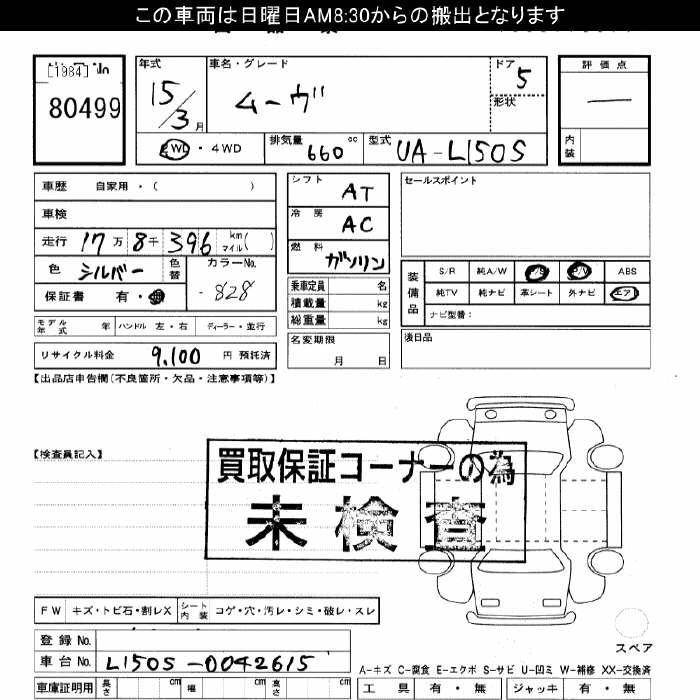 この車両は日曜日AM8:30からの搬出となります
[1984]
80499
年式
15/3月
車名・グレード
ムーヴ
ドア 5
形状
評価点
―
内装
2WD・4WD
排気量 660 cc
型式 UA-L150S
車歴 自家用・( )
車検
走行 17万8千396 km マイル( )
色 シルバー 色替
カラーNo. -828
保証書 有・
シフト AT
冷房 AC
燃料 ガソリン
乗車定員 名
積載量 kg
総重量 kg
セールスポイント
装備品
S/R 純A/W P/S P/W ABS
純TV 純ナビ 革シート 外ナビ エア
ナビ型番:
モデル年式 年 ハンドル 左・右 ディーラー・並行
リサイクル料金 9,100 円 預託済
名変期限 月 日
後日品
【出品店申告欄(不良箇所・欠品・注意事項等)】
【検査員記入】
買取保証コーナーの為
未検査
FW キズ・トビ石・割レX
シート内装 コゲ・穴・汚レ・シミ・破レ・スレ
登録No.
車台No. L150S-0042615
スペア
A-キズ C-腐食 E-エクボ S-サビ U-凹ミ W-補修 XX-交換済
車庫証明用 長さ cm 幅 cm 高さ cm
工具 有・無 ジャッキ 有・無